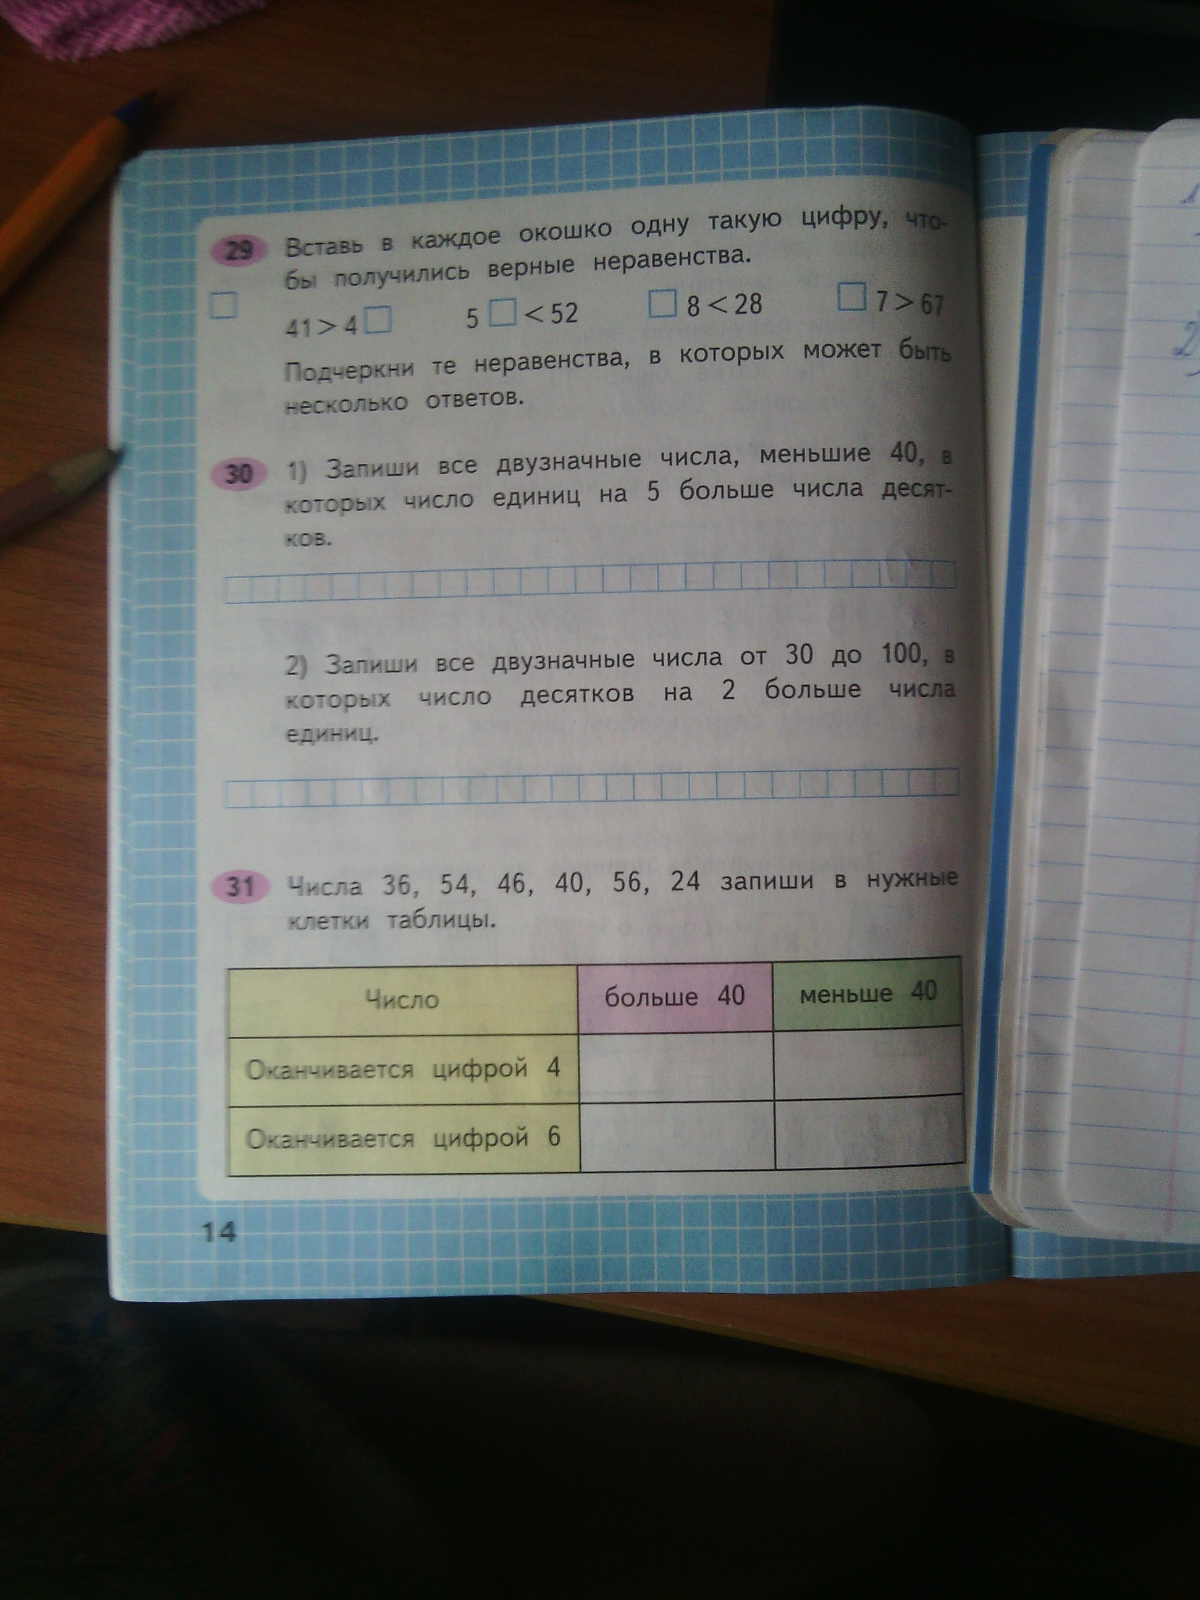 29 Вставь в каждое окошко одну такую цифру, что-
бы получились верные неравенства.
41 > 4□ 5□ < 52 □8 < 28 □7 > 67
Подчеркни те неравенства, в которых может быть
несколько ответов.
30 1) Запиши все двузначные числа, меньшие 40, в
которых число единиц на 5 больше числа десят-
ков.
2) Запиши все двузначные числа от 30 до 100, в
которых число десятков на 2 больше числа
единиц.
31 Числа 36, 54, 46, 40, 56, 24 запиши в нужные
клетки таблицы.
Число больше 40 меньше 40
Оканчивается цифрой 4
Оканчивается цифрой 6
14